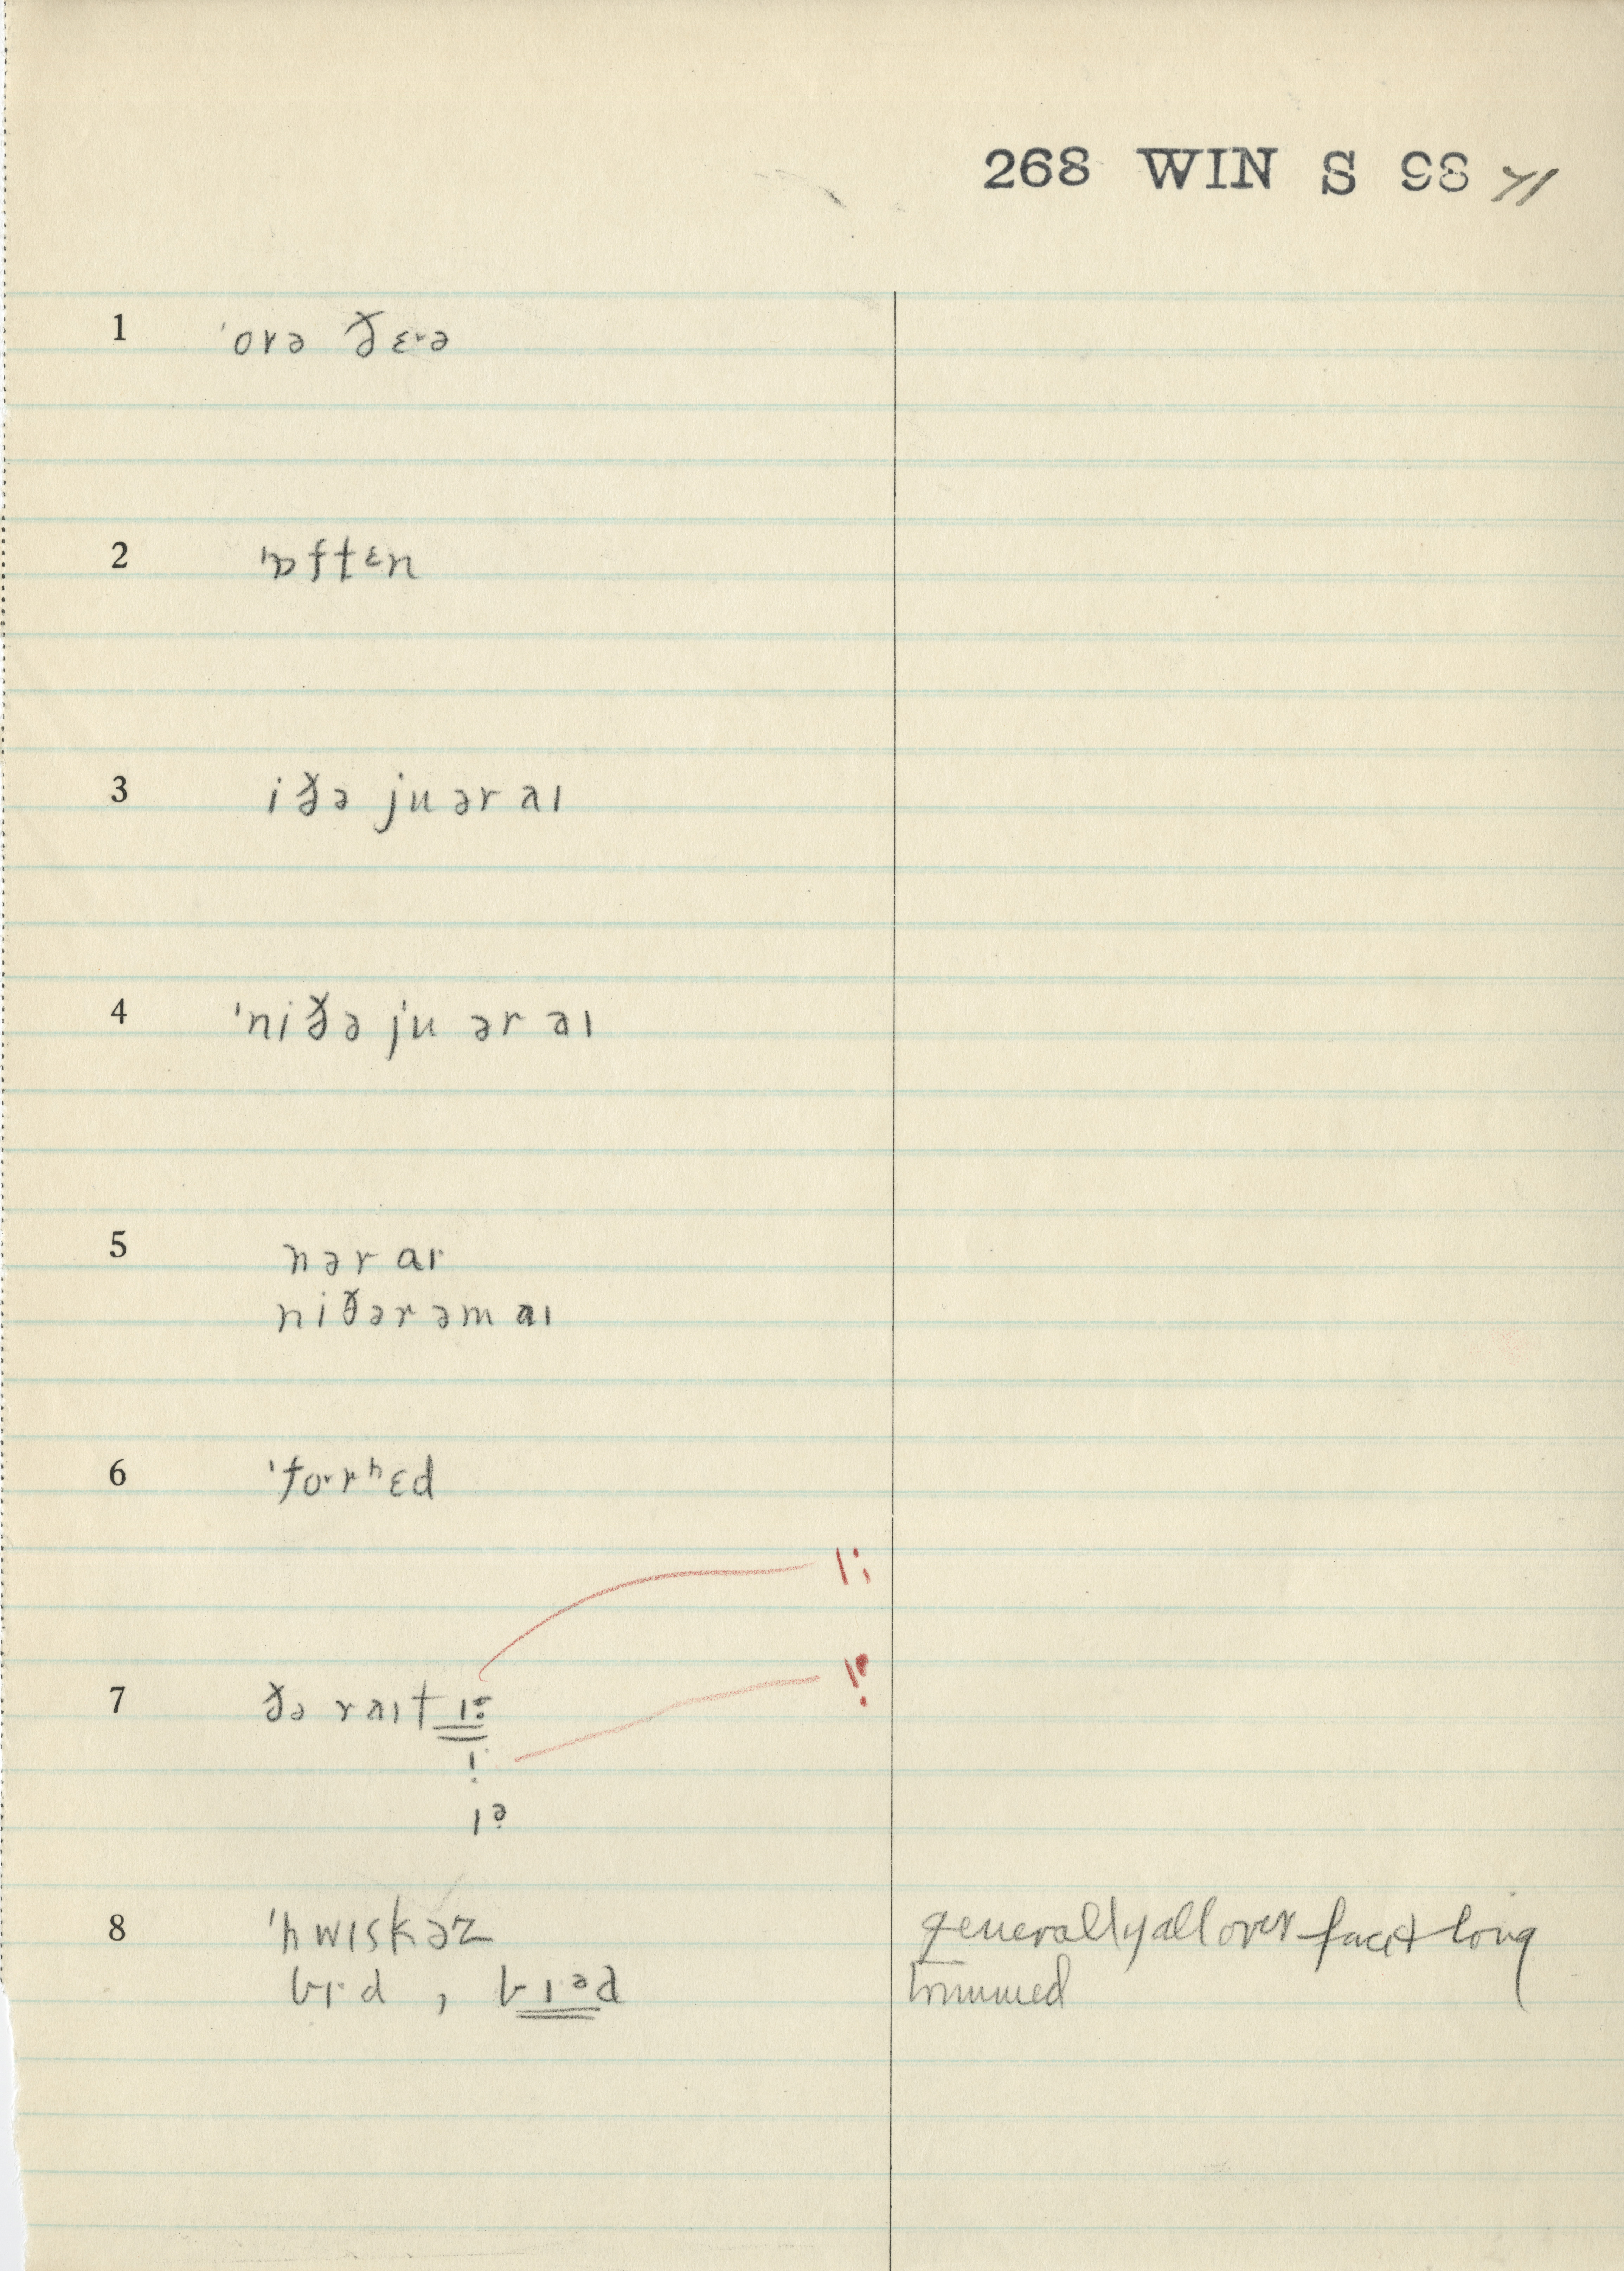 268 WIN S 98 71
1 ˈovə ðɛ·ə
2 ˈɒftɛn
3 iðə ju ər aɪ
4 ˈniðə ju ər aɪ
5 nər aɪ
niðər əm aɪ
6 ˈfo·rʰɛd
7 ðə raɪt
8 ˈhwɪskəz
generally all over face + long
trimmed